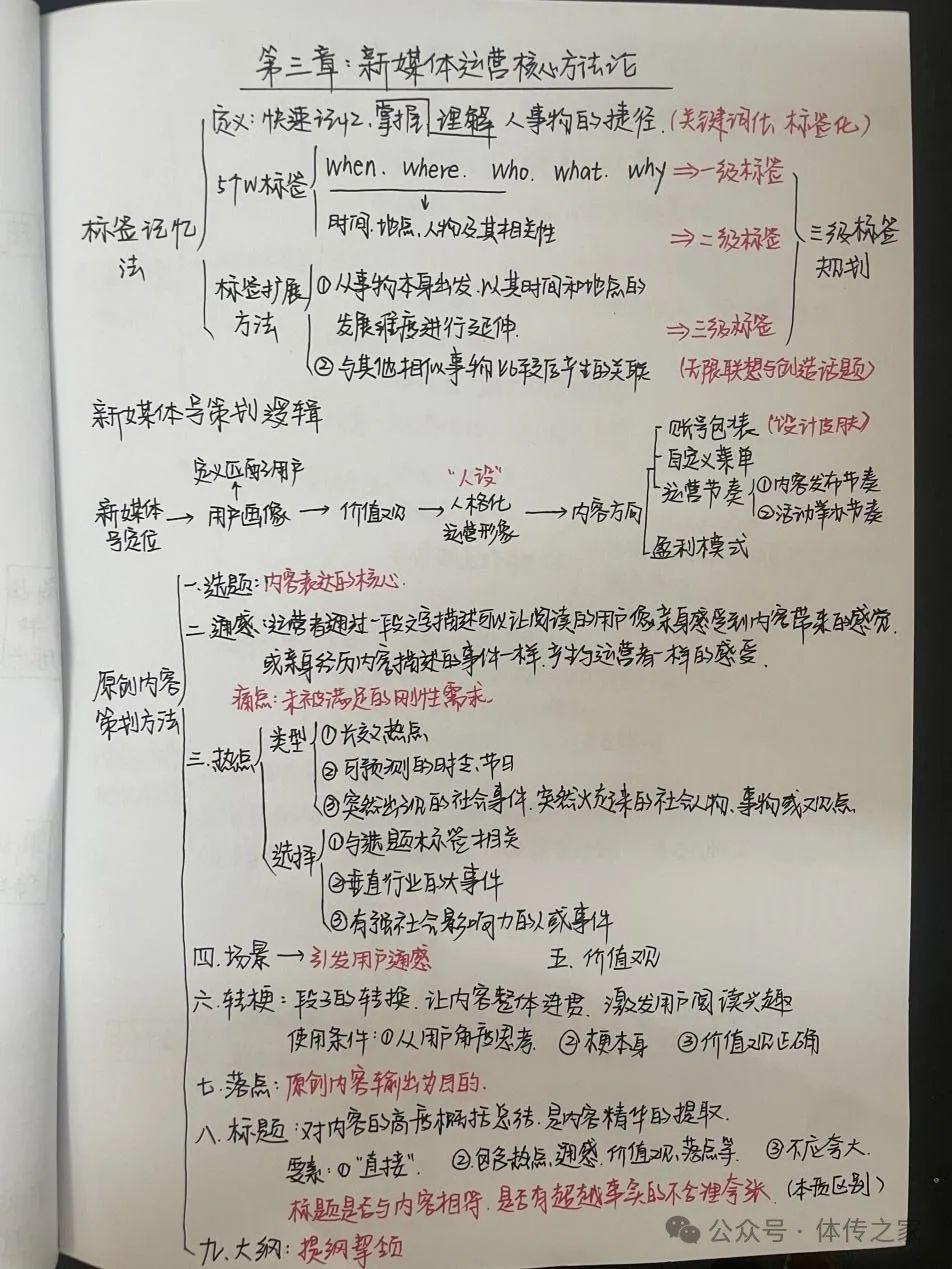 第三章：新媒体运营核心方法论
定义：快速记忆、掌握理解人事物的捷径.（关键词化、标签化）
5个W标签 when. where. who. what. why ⇒一级标签
时间.地点.人物及其相关性 ⇒二级标签
标签记忆法
三级标签规划
标签扩展方法 ①从事物本身出发.以其时间和地点的
发展维度进行延伸. ⇒三级标签
②与其他相似事物比较后产生的关联 （无限联想与创造话题）
新媒体号策划逻辑
定义匹配的用户
新媒体号定位→用户画像→价值观→"人设"人格化运营形象→内容方向
账号包装（设计皮肤）
自定义菜单
运营节奏 ①内容发布节奏
②活动举办节奏
盈利模式
原创内容策划方法
一.选题：内容表达的核心.
二.通感：运营者通过一段文字描述可以让阅读的用户像亲身感受到内容带来的感觉.
或亲身经历内容描述的事件一样.产生与运营者一样的感受.
痛点：未被满足的刚性需求.
三.热点 类型 ①长效热点
②可预测的时令、节日
③突然出现的社会事件.突然火起来的社会人物、事物或观点
选择 ①与选题标签相关
②垂直行业的大事件
③有强社会影响力的人或事件
四.场景→引发用户通感 五.价值观
六.转梗：段子的转换.让内容整体连贯.激发用户阅读兴趣
使用条件：①从用户角度思考. ②梗本身 ③价值观正确
七.落点：原创内容输出为目的.
八.标题：对内容的高度概括总结.是内容精华的提取.
要素：①"直接". ②包含热点、通感.价值观、落点等. ③不应夸大.
标题是否与内容相符.是否有超越事实的不合理夸张.（本质区别）
九.大纲：提纲挈领
公众号·体传之家